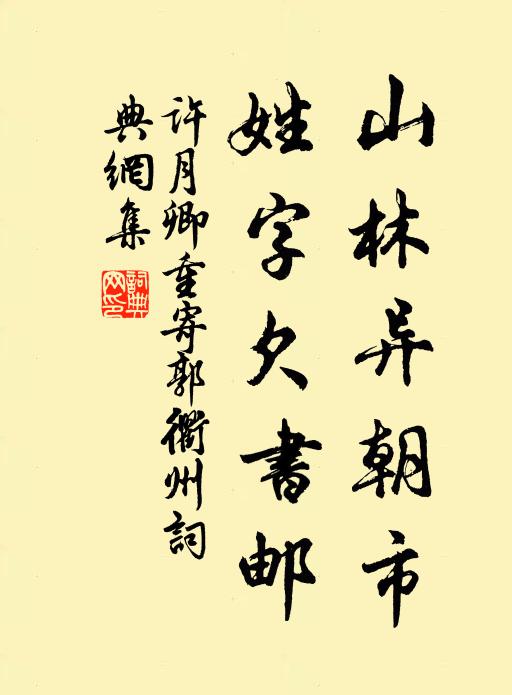 山林异朝市
姓字久書邮
許月卿重寄郭衢州詞
典網集
詞典
网印